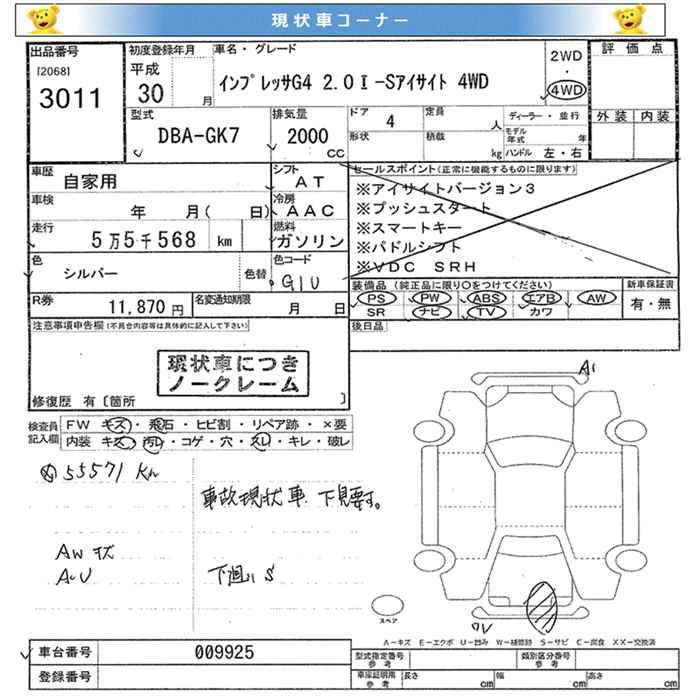 現状車コーナー
出品番号
[2068]
3011
初度登録年月
平成
30 月
車名・グレード
インプレッサG4 2.0I-Sアイサイト 4WD
2WD
・
4WD
評価点
外装 内装
型式
DBA-GK7
排気量
2000
cc
ドア
4
定員
人
形状
積載
kg
ディーラー・並行
モデル年式 年
ハンドル 左・右
車歴
自家用
シフト
AT
車検
年 月( 日)
冷房
AAC
走行
5万5千568 km
燃料
ガソリン
色
シルバー
色替
色コード
G1U
R券
11,870 円
名変通知期限
月 日
セールスポイント(正常に機能するものに限ります)
※アイサイトバージョン3
※プッシュスタート
※スマートキー
※パドルシフト
※VDC SRH
装備品(純正品に限り○をつけてください)
PS PW ABS エアB AW
SR ナビ TV カワ
新車保証書
有・無
後日品
注意事項申告欄(不具合内容等は具体的に記入して下さい)
現状車につき
ノークレーム
修復歴 有〔箇所 〕
検査員
記入欄
FW キズ・飛石・ヒビ割・リペア跡・×要
内装 キズ・汚れ・コゲ・穴・スレ・キレ・破レ
55571 Km
事故現状車 下見要す。
AW キズ
A・U
下廻り S
A1
スペア
A-キズ E-エクボ U-凹み W-補修跡 S-サビ C-腐食 XX-交換済
車台番号
009925
登録番号
型式指定番号
参考
類別区分番号
参考
車庫証明用
参考
長さ
cm
幅
cm
高さ
cm